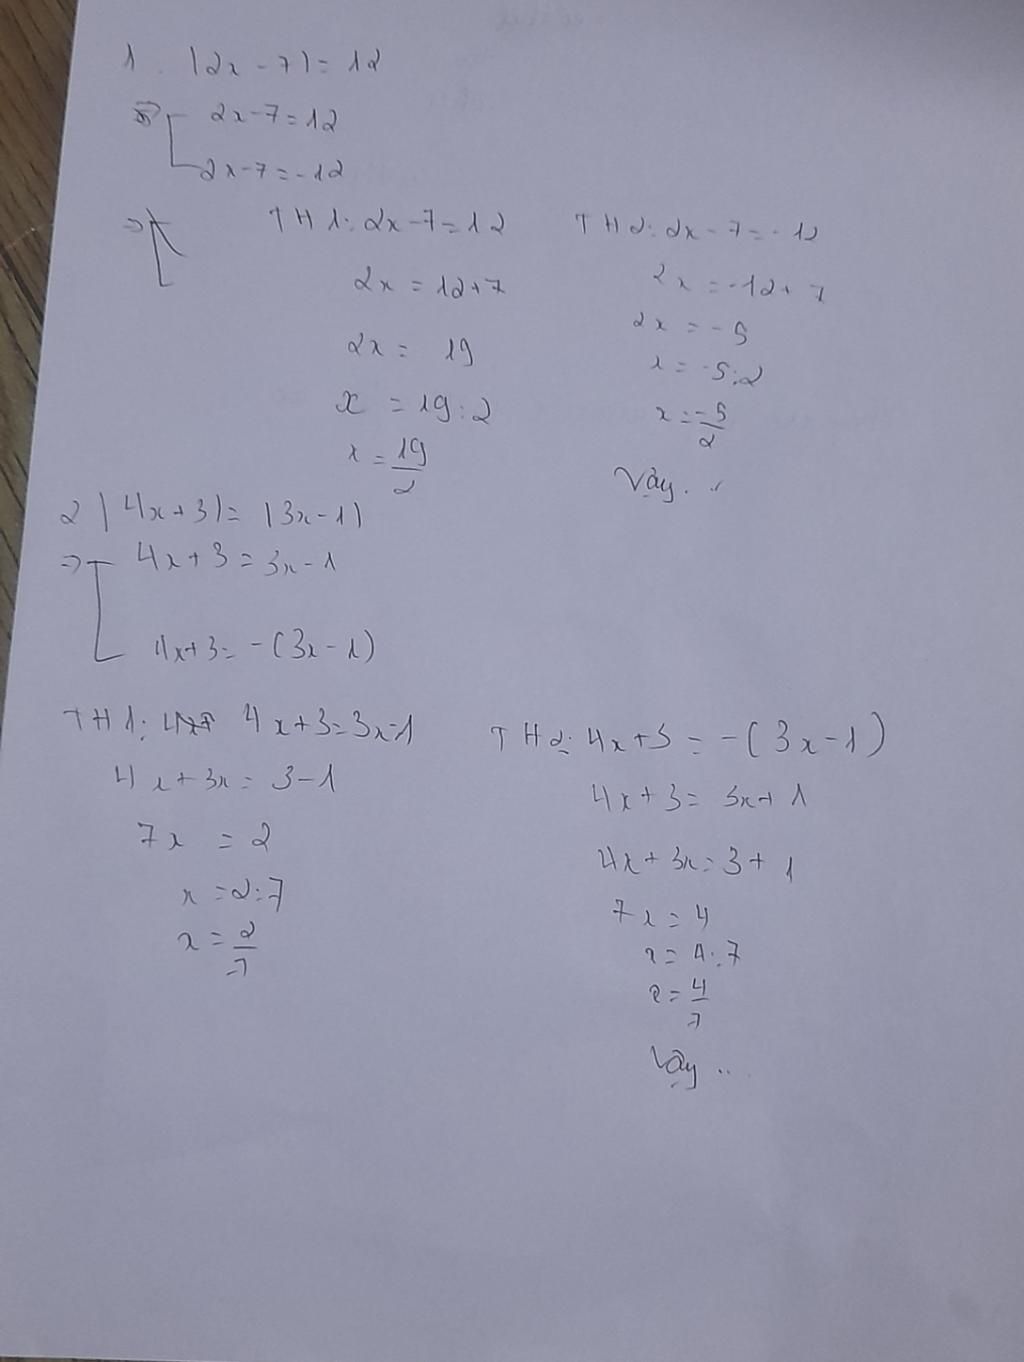 1. |2x - 7| = 12
⇒ 2x-7=12
2x-7=-12
⇒
TH1: 2x-7=12
2x = 12+7
2x = 19
x = 19:2
x = 19/2
TH2: 2x-7=-12
2x = -12+7
2x = -5
x = -5:2
x = -5/2
Vậy...
2 |4x+3| = |3x-1|
⇒ 4x+3=3x-1
4x+3=-(3x-1)
TH1: 4x+3=3x-1
4x+3x=3-1
7x = 2
x = 2:7
x = 2/7
TH2: 4x+3=-(3x-1)
4x+3=3x+1
4x+3x=3+1
7x=4
x=4:7
x=4/7
Vậy...